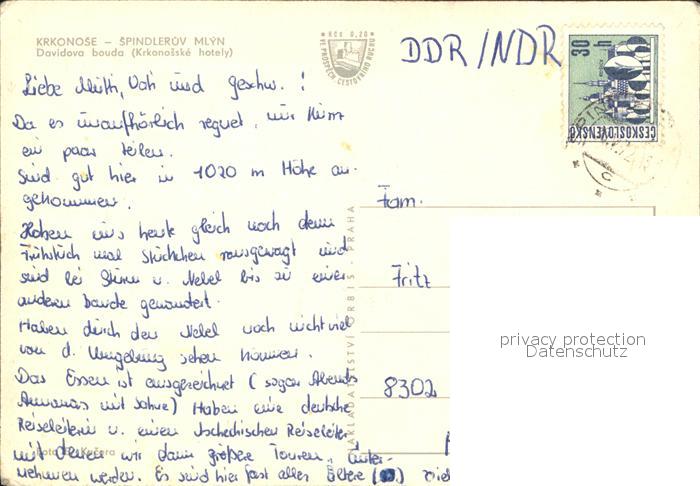 KRKONOŠE – ŠPINDLERŮV MLÝN
Davidova bouda (Krkonošské hotely)
Kčs 0,20
VE PROSPĚCH CESTOVNÍHO RUCHU
DDR / NDR
30 h
ČESKOSLOVENSKO
Liebe Mutti, Vati und geschw. !
Da es unaufhörlich regnet, nur kurz
ein paar Zeilen.
Sind gut hier in 1020 m Höhe an-
gekommen.
Haben uns heute gleich nach dem
Frühstück mal Stückchen rausgewagt und
sind bei Sturm u. Nebel bis zu einer
anderen baude gewandert.
Haben durch den Nebel noch nicht viel
von d. Umgebung sehen können.
Das Essen ist ausgezeichnet ( sogar Abends
Ananas mit Sahne) Haben eine deutsche
Reiseleiterin u. einen tschechischen Reiseleiter
mit denen wir dann größere Touren unter-
nehmen werden. Es sind hier fast alles Ältere
NAKLADATELSTVÍ ORBIS - PRAHA
Foto Kučera
Fam.
Fritz
8302
privacy protection
Datenschutz